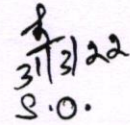 31/3/22
S.O.